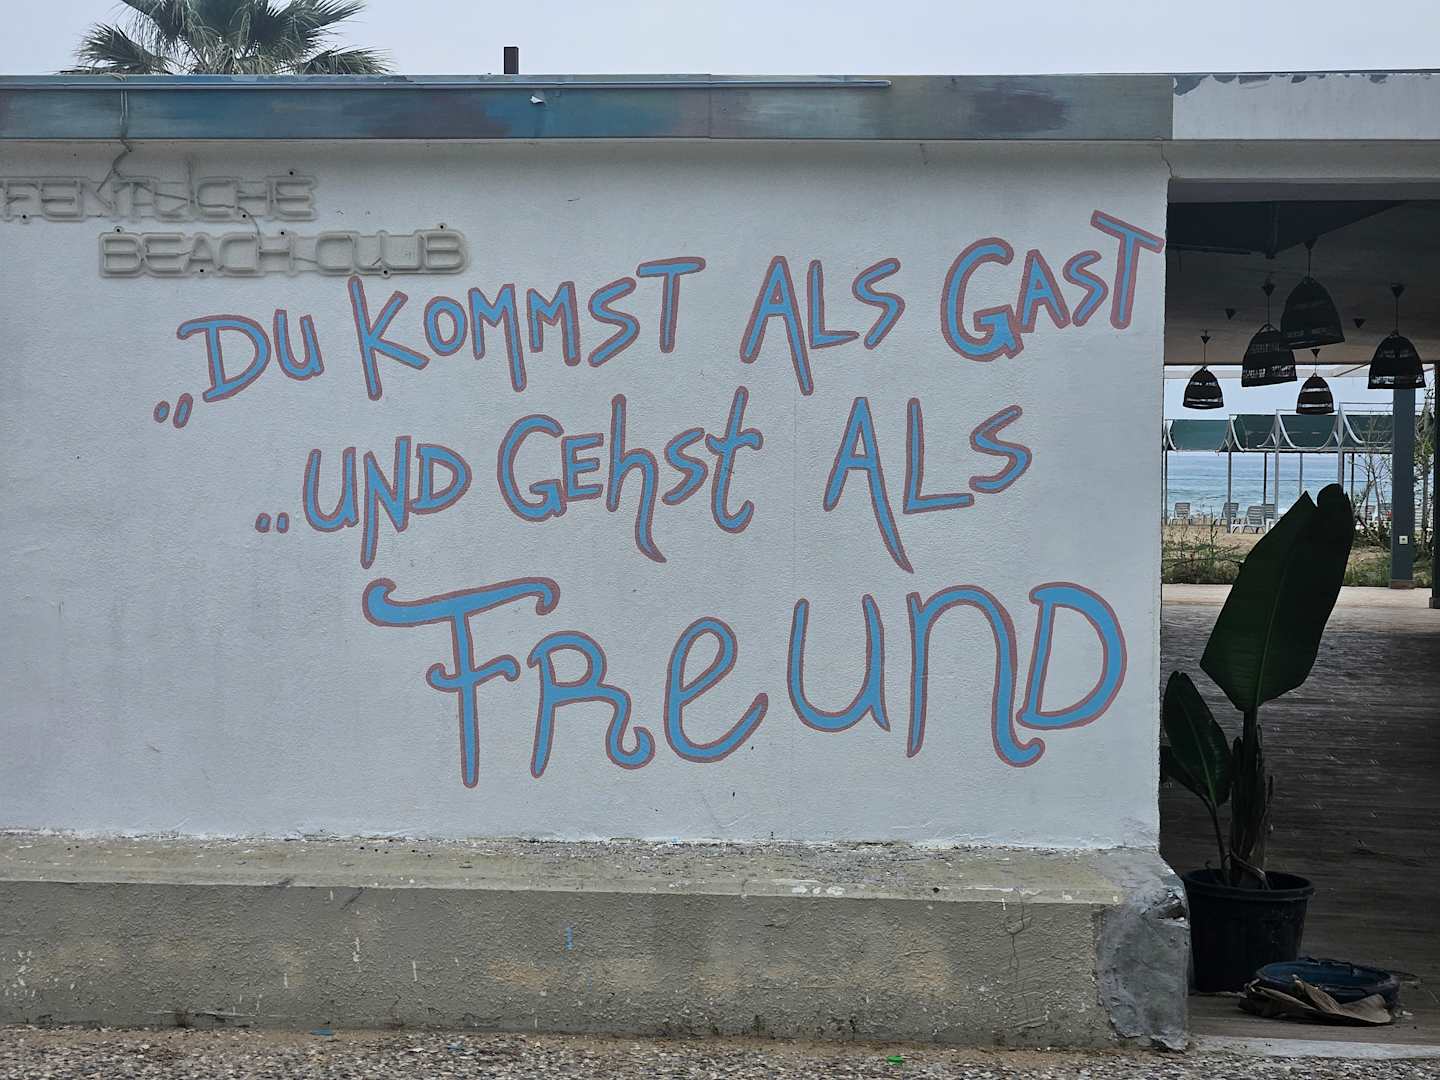 FFENTLICHE
BEACH CLUB
„DU KOMMST ALS GAST
..UND GEhST ALS
FREUND